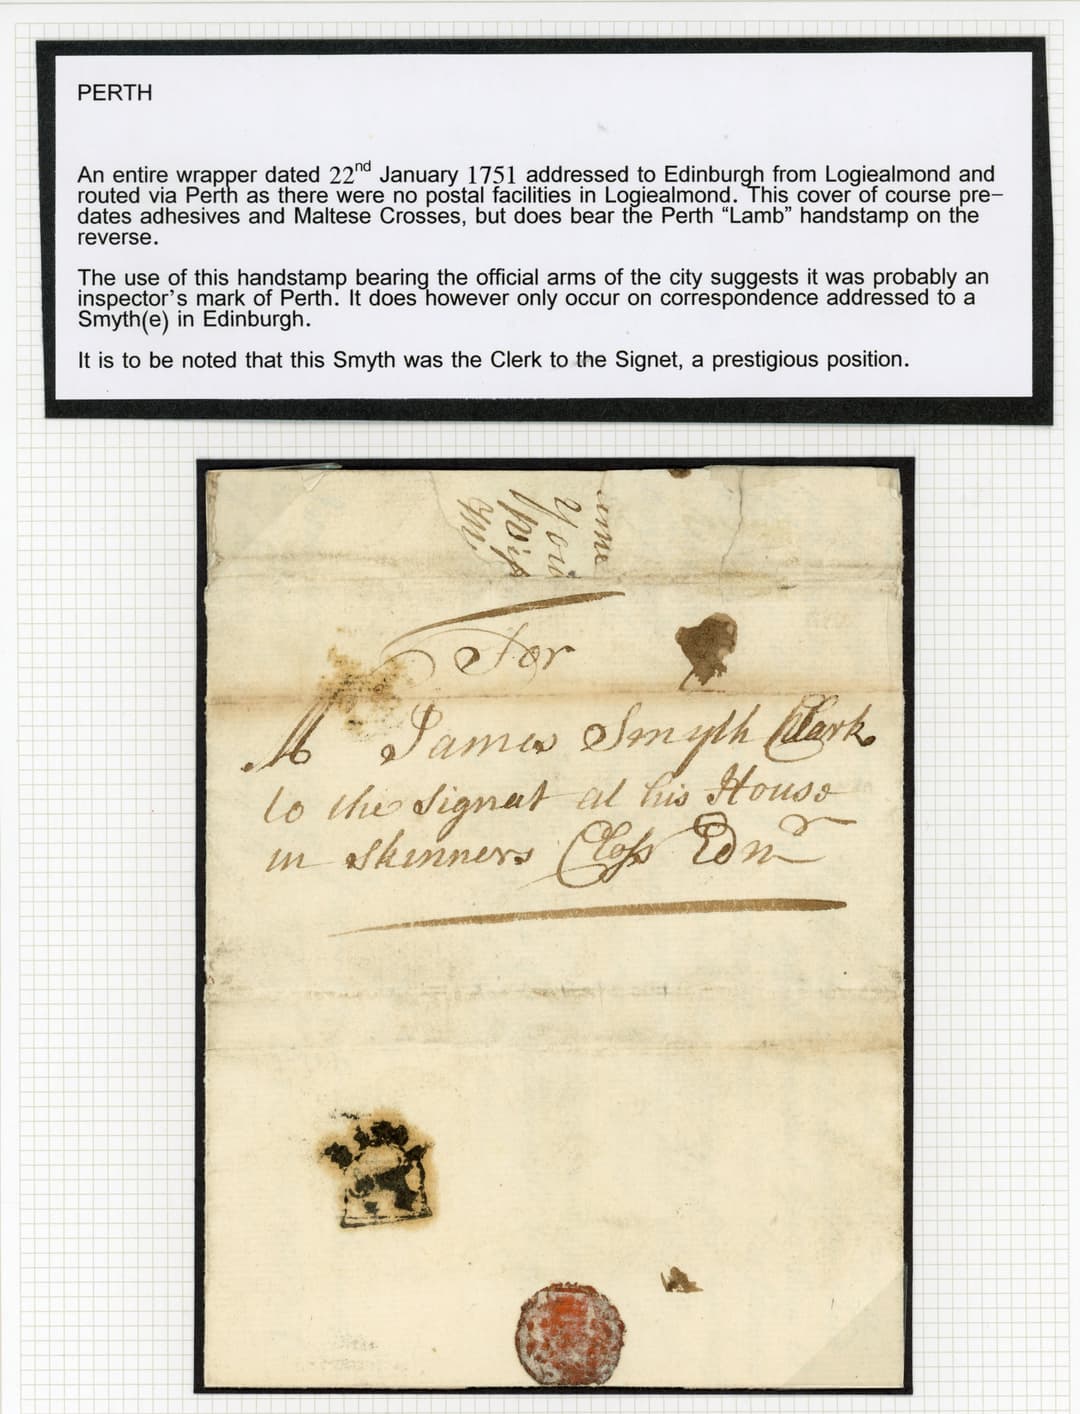 PERTH
An entire wrapper dated 22nd January 1751 addressed to Edinburgh from Logiealmond and
routed via Perth as there were no postal facilities in Logiealmond. This cover of course pre-
dates adhesives and Maltese Crosses, but does bear the Perth “Lamb” handstamp on the
reverse.
The use of this handstamp bearing the official arms of the city suggests it was probably an
inspector’s mark of Perth. It does however only occur on correspondence addressed to a
Smyth(e) in Edinburgh.
It is to be noted that this Smyth was the Clerk to the Signet, a prestigious position.
For
Mr James Smyth Clark
to the Signet at his House
in Skinners Closs Ednr